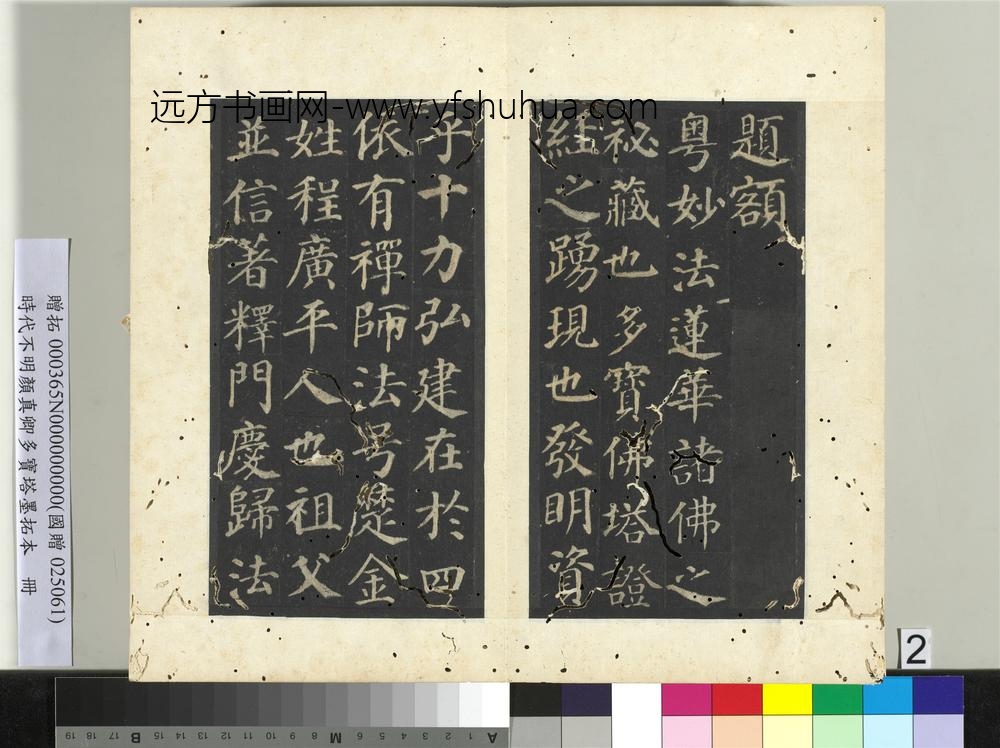 远方书画网-www.yfshuhua.com
題額
粤妙法蓮華諸佛之
祕藏也多寶佛塔證
經之踴現也發明資
乎十力弘建在於四
依有禪師法号楚金
姓程廣平人也祖父
並信著釋門慶歸法
贈拓 000365N000000000(國贈 025061)
時代不明顏真卿多寶塔墨拓本 冊
2
19 18 17 16 B 15 14 13 12 11 10 9 8 M 7 6 5 4 3 2 1 A